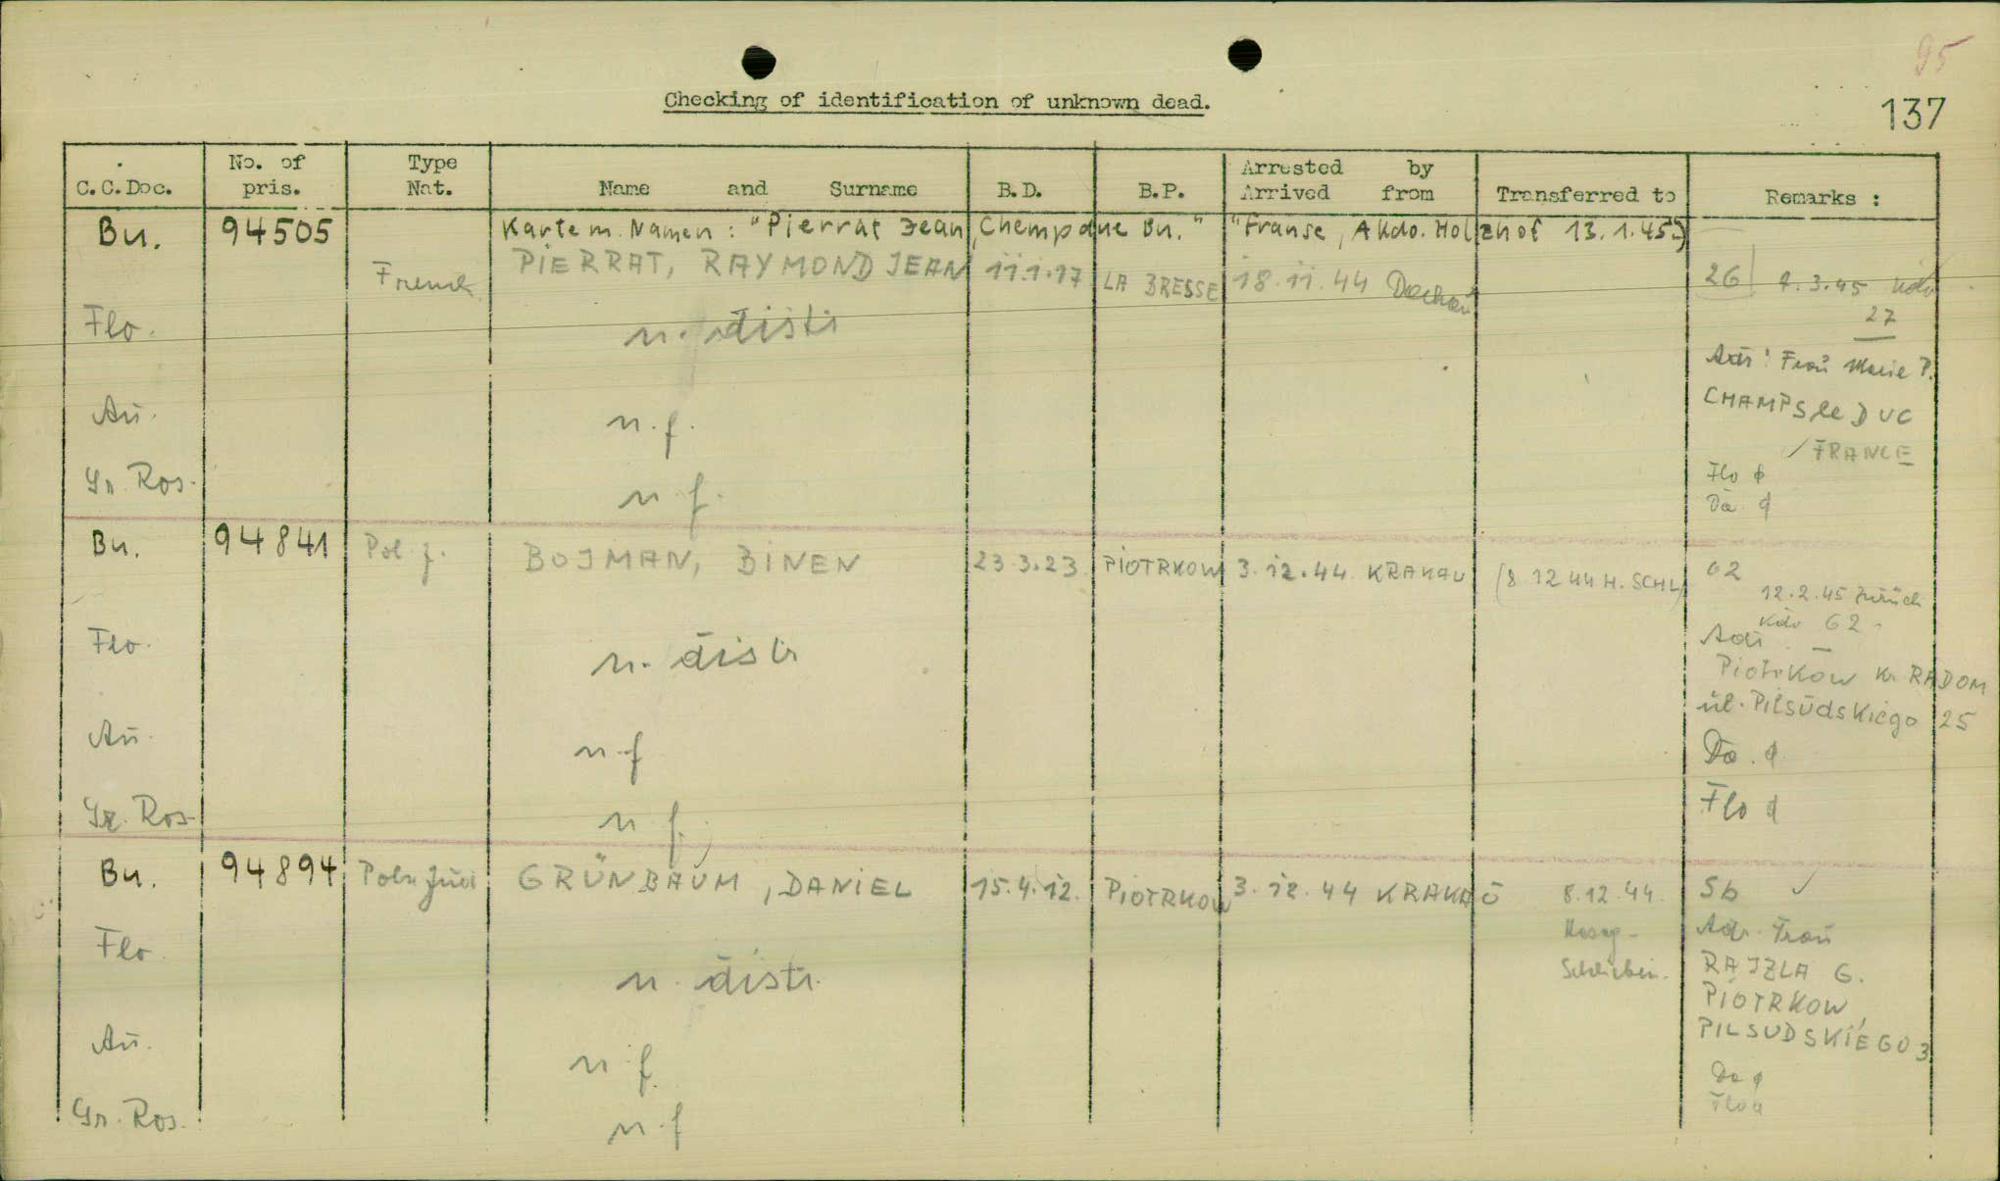 95
137
Checking of identification of unknown dead.
C.C.Doc. No. of pris. Type Nat. Name and Surname B.D. B.P. Arrested by Arrived from Transferred to Remarks :
Bu. 94505 Karte m. Namen : "Pierrat Jean, Chempdne Bu." "Franse, AKdo. Holzhof 13.1.45)
French PIERRAT, RAYMOND JEAN 11.1.17 LA BRESSE 18.11.44 Dachau 26 4.3.45 Kdo
27
Flo. n. distr
Adr: Frau Marie P.
Au. n.f. CHAMPS le DUC
/ FRANCE
Gr. Ros. n.f. Flo
Da
Bu. 94841 Pol. J. BOJMAN, BINEN 23.3.23 PIOTRKOW 3.12.44 KRAKAU (8 12 44 H. SCHL) 62
12.2.45 zurück
Kdo 62
Flo. n. distr Adr
Piotrkow Kr. RADOM
ul. Pilsudskiego 25
Au. n.f Da.
Gr. Ros. n f. Flo
Bu. 94894 Poln Jude GRÜNBAUM, DANIEL 15.4.12. PIOTRKOW 3.12.44 KRAKAU 8.12.44 5b ✓
Flo Hasag- Adr. Frau
n. distr. Schlieben. RAJZLA G.
PIOTRKOW
Au. PILSUDSKIEGO 3
n.f. Da
Gr. Ros. n.f Flo